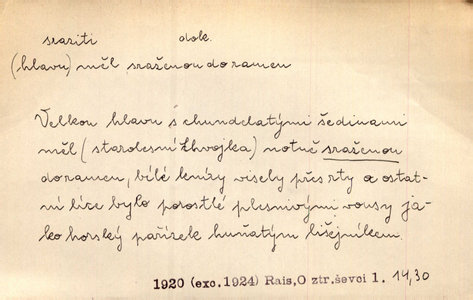 sraziti dok.
(hlavu) měl sraženou do ramen
Velkou hlavu s chundelatými šedinami
měl (starolesní Chvojka) notně sraženou
do ramen, bílé kníry visely přes rty a ostat-
ní líce bylo porostlé plesnivými vousy ja-
ko horský pařízek huňatým lišejníkem.
1920 (exc.1924) Rais,O ztr.ševci 1. 14,30